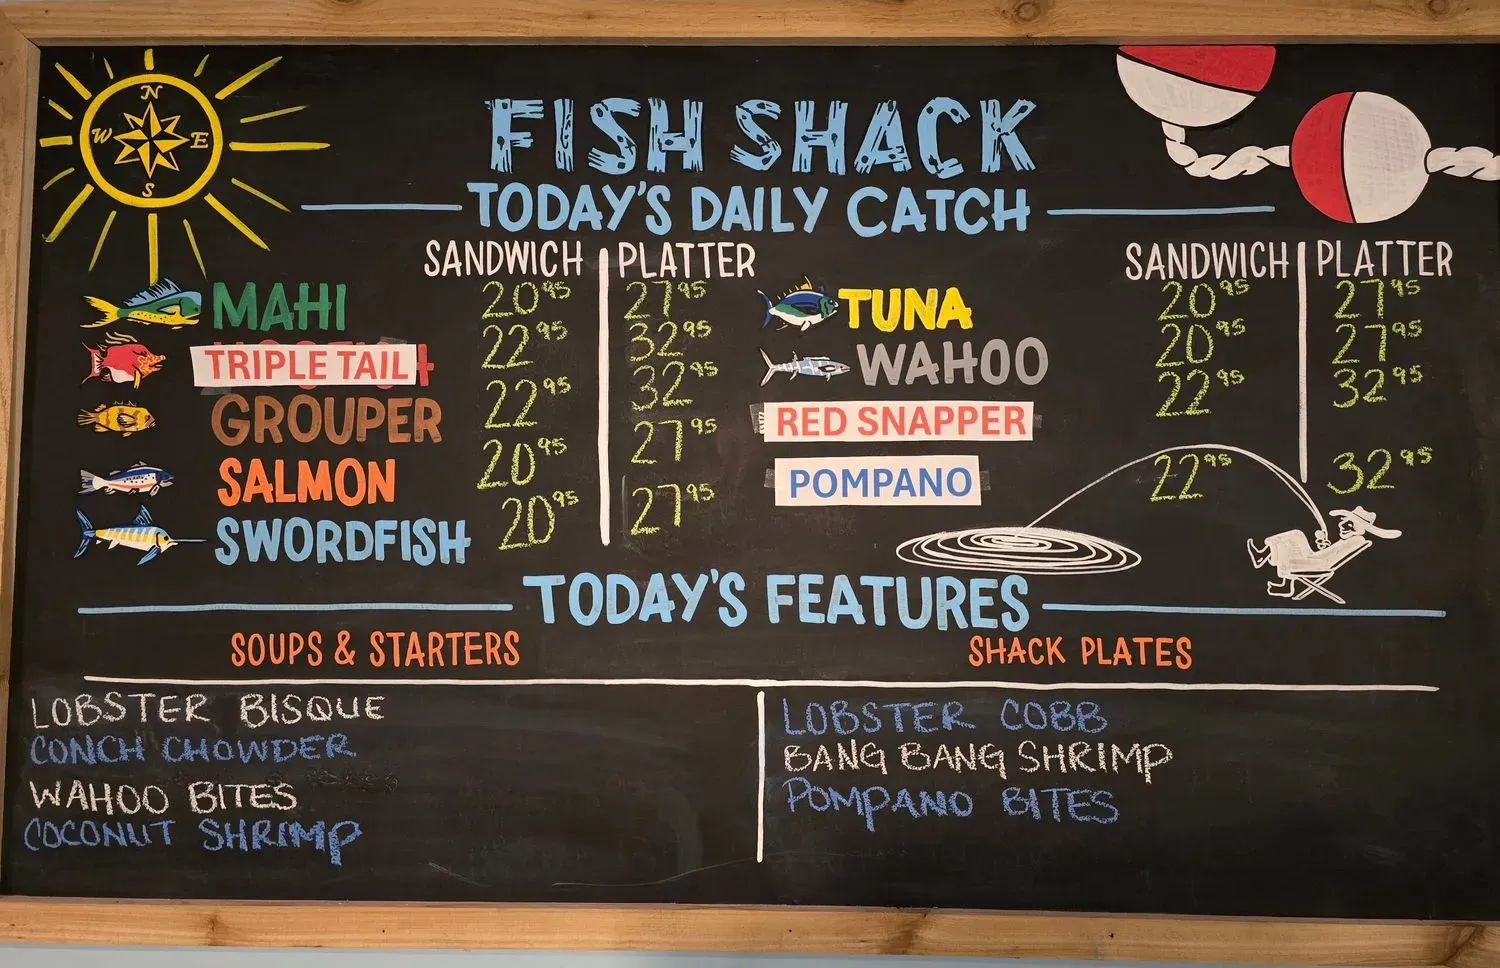 N
W E
S
FISH SHACK
TODAY'S DAILY CATCH
SANDWICH | PLATTER
MAHI 20⁹⁵ 27⁹⁵
TRIPLE TAIL 22⁹⁵ 32⁹⁵
GROUPER 22⁹⁵ 32⁹⁵
SALMON 20⁹⁵ 27⁹⁵
SWORDFISH 20⁹⁵ 27⁹⁵
SANDWICH | PLATTER
TUNA 20⁹⁵ 27⁹⁵
WAHOO 20⁹⁵ 27⁹⁵
RED SNAPPER 22⁹⁵ 32⁹⁵
POMPANO 22⁹⁵ 32⁹⁵
TODAY'S FEATURES
SOUPS & STARTERS
LOBSTER BISQUE
CONCH CHOWDER
WAHOO BITES
COCONUT SHRIMP
SHACK PLATES
LOBSTER COBB
BANG BANG SHRIMP
POMPANO BITES